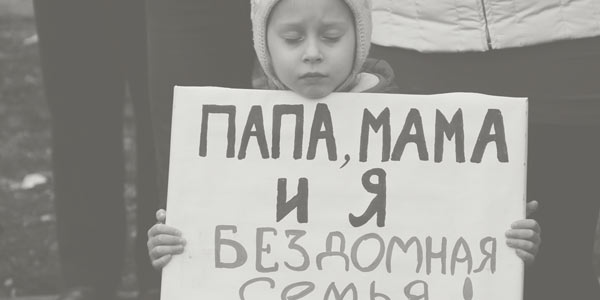 ПАПА, МАМА
И Я
БЕЗДОМНАЯ
СЕМЬЯ!